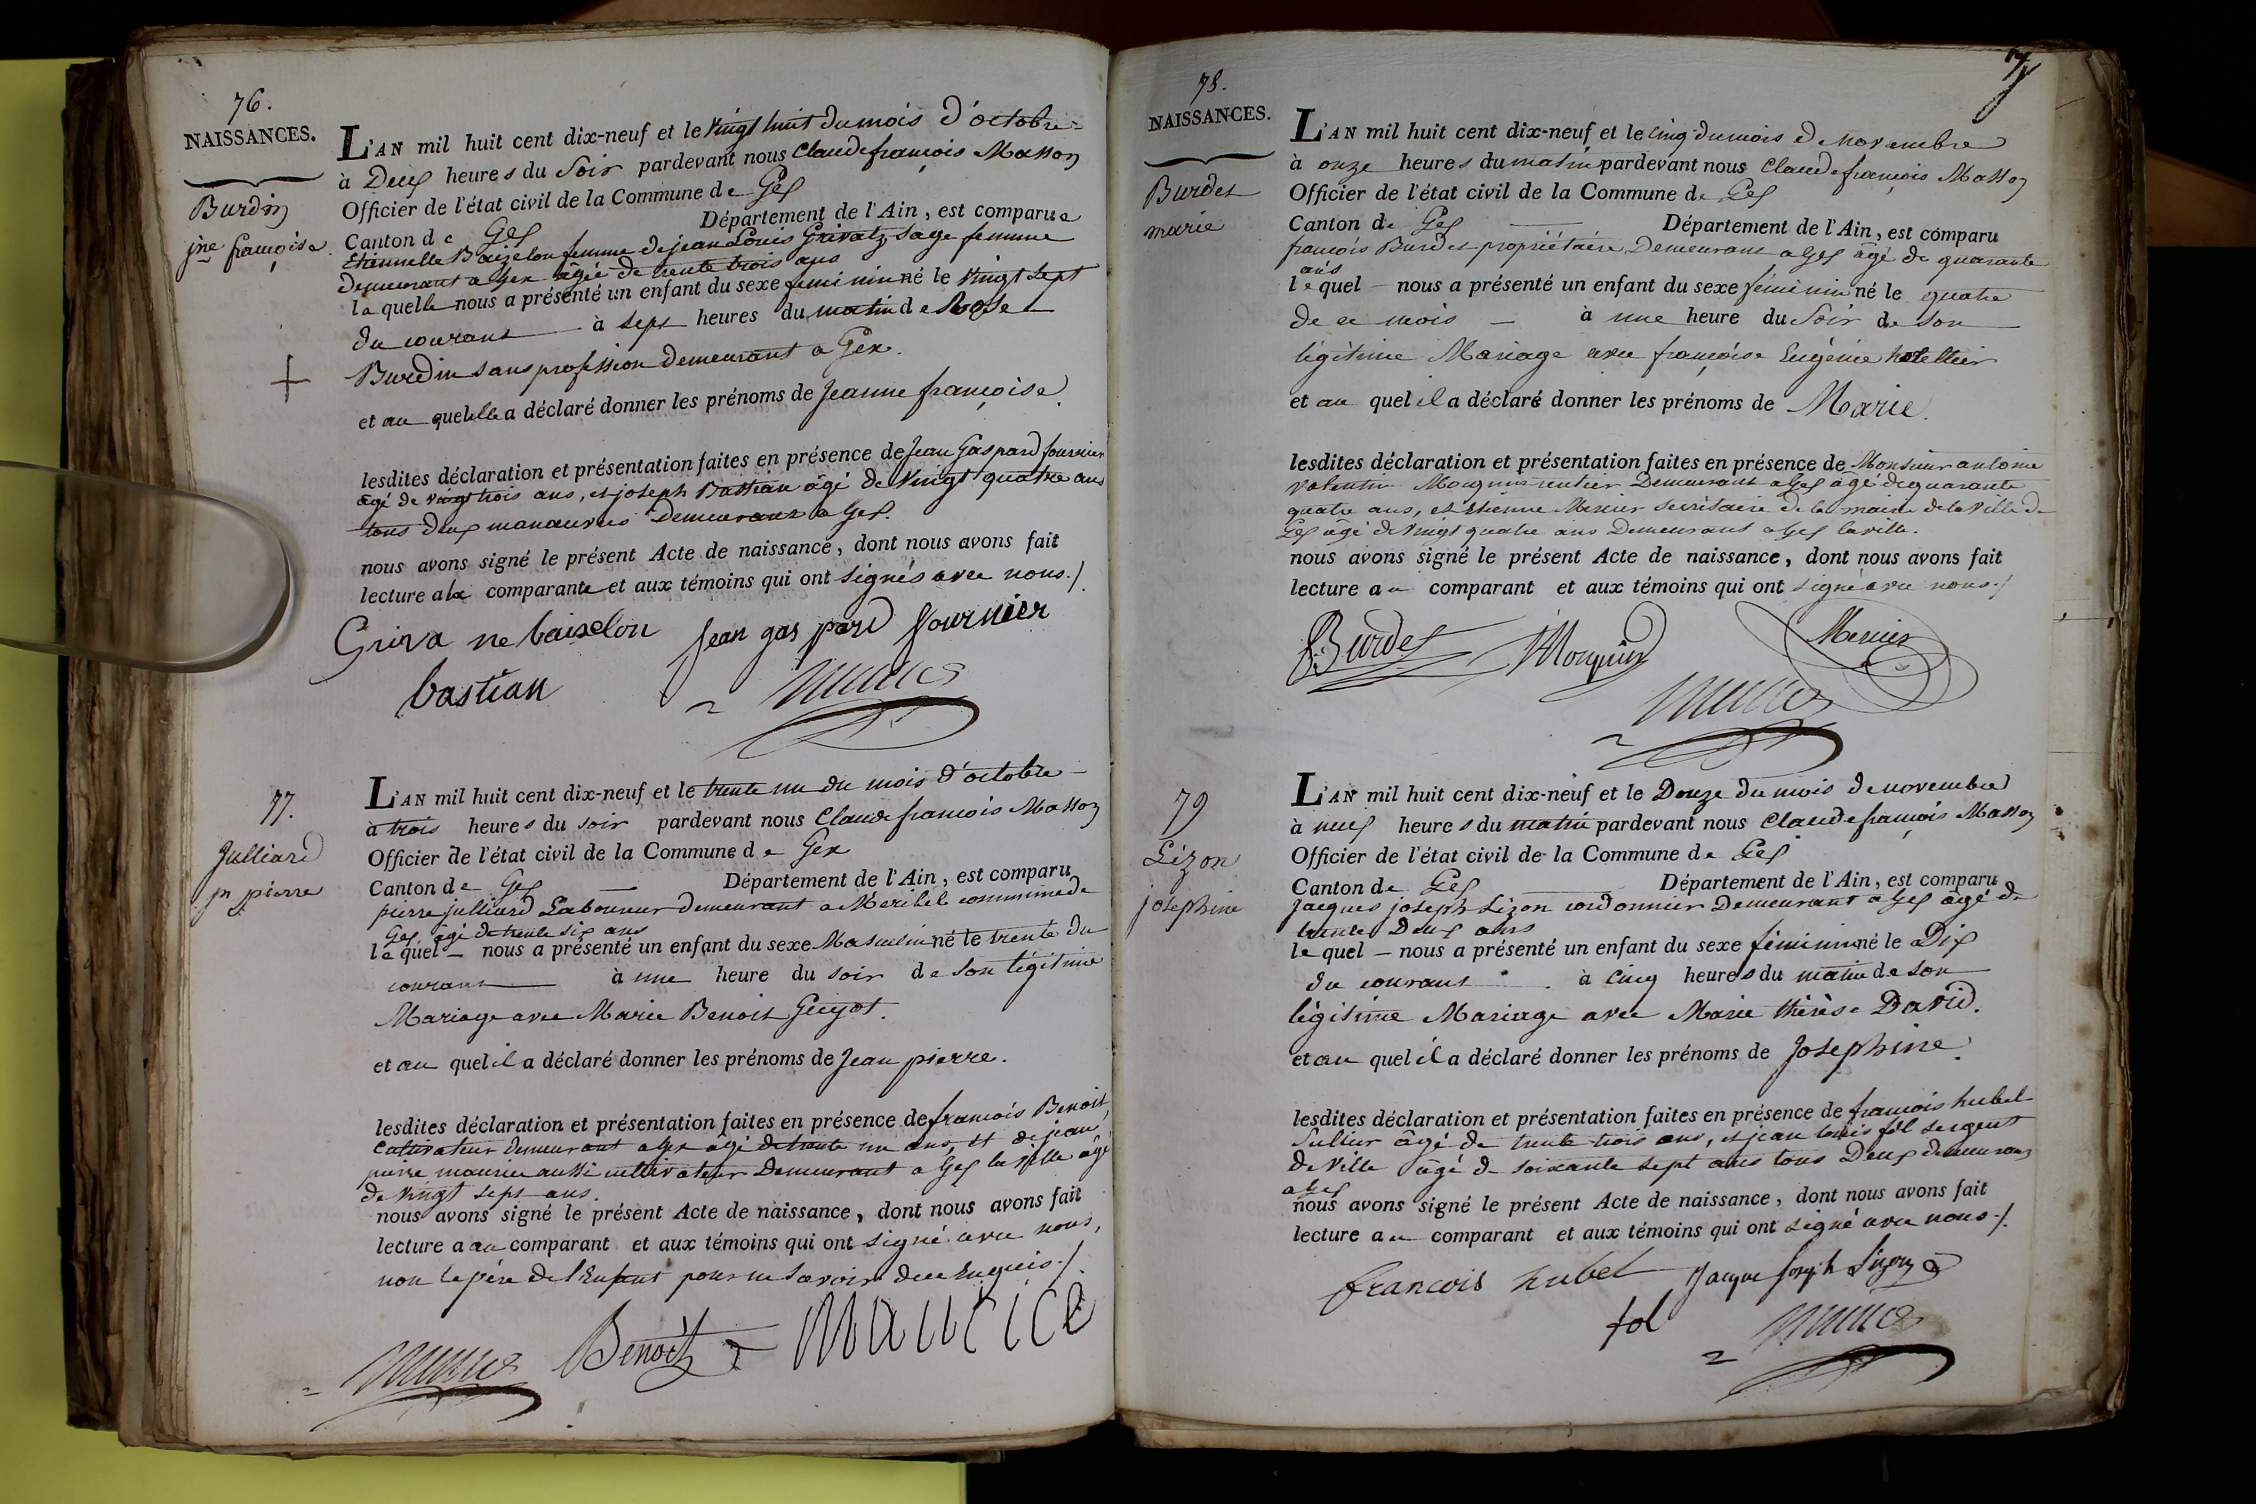 76.
NAISSANCES.
Burdin
jne françoise
L'AN mil huit cent dix-neuf et le vingt huit du mois d'octobre
à Deux heures du Soir pardevant nous Claude françois Masson
Officier de l'état civil de la Commune de Gex
Canton de Gex Département de l'Ain, est comparue
Etiennette Baizelon femme de jean Louis Grivatz Sage femme
demeurant a Gex âgée de trente trois ans
laquelle nous a présenté un enfant du sexe feminin né le vingt sept
du courant à sept heures du matin de Rose
Burdin sans profession demeurant a Gex.
et au quel elle a déclaré donner les prénoms de Jeanne françoise.
lesdites déclaration et présentation faites en présence de Jean Gaspard fournier
âgé de vingt trois ans, et joseph Bastian âgé de vingt quatre ans
tous deux manœuvres demeurant a Gex.
nous avons signé le présent Acte de naissance, dont nous avons fait
lecture a la comparante et aux témoins qui ont signés avec nous./.
Griva ne baizelon jean gaspard fournier
bastian
77.
Julliard
jn pierre
L'AN mil huit cent dix-neuf et le trente un du mois d'octobre
à trois heures du soir pardevant nous Claude françois Masson
Officier de l'état civil de la Commune de Gex
Canton de Gex Département de l'Ain, est comparu
pierre julliard Laboureur demeurant a commune de
Gex âgé de trente six ans
lequel nous a présenté un enfant du sexe Masculin né le trente du
courant à une heure du soir de son légitime
Mariage avec Marie Benoit Guyot.
et au quel il a déclaré donner les prénoms de Jean pierre.
lesdites déclaration et présentation faites en présence de françois Benoit,
Cultivateur demeurant a Gex âgé de trente un ans, et de jean
pierre maurice aussi cultivateur demeurant a Gex la ville âgé
de vingt sept ans.
nous avons signé le présent Acte de naissance, dont nous avons fait
lecture a au comparant et aux témoins qui ont signé avec nous,
non le père de l'Enfant pour ne savoir de ce Enquis./.
Benoît maurice
78.
NAISSANCES.
Burdet
marie
L'AN mil huit cent dix-neuf et le cinq du mois de Novembre
à onze heures du matin pardevant nous Claude françois Masson
Officier de l'état civil de la Commune de Gex
Canton de Gex Département de l'Ain, est comparu
françois Burdet propriétaire Demeurant a Gex âgé de quarante
ans
lequel nous a présenté un enfant du sexe féminin né le quatre
de ce mois à une heure du Soir de son
légitime Mariage avec françoise Eugénie
et au quel il a déclaré donner les prénoms de Marie.
lesdites déclaration et présentation faites en présence de Monsieur antoine
valentin rentier Demeurant a Gex âgé de quarante
quatre ans, et Etienne Mercier secrétaire de la mairie de la Ville de
Gex âgé de vingt quatre ans Demeurant a Gex la ville.
nous avons signé le présent Acte de naissance, dont nous avons fait
lecture au comparant et aux témoins qui ont signé avec nous./
Burdet Mercier
79
Lizon
josephine
L'AN mil huit cent dix-neuf et le Douze du mois de novembre
à neuf heures du matin pardevant nous Claude françois Masson
Officier de l'état civil de la Commune de Gex
Canton de Gex Département de l'Ain, est comparu
Jacques joseph Lizon cordonnier Demeurant a Gex âgé de
trente Deux ans
lequel nous a présenté un enfant du sexe féminin né le Dix
du courant à cinq heures du matin de son
légitime Mariage avec Marie thérèse David.
et au quel il a déclaré donner les prénoms de Josephine.
lesdites déclaration et présentation faites en présence de françois hubel
Sellier âgé de trente trois ans, et jean louis fol sergent
de Ville âgé de soixante sept ans tous Deux demeurans
a Gex
nous avons signé le présent Acte de naissance, dont nous avons fait
lecture au comparant et aux témoins qui ont signé avec nous./.
francois hubel Jacque Joseph Lizon
fol